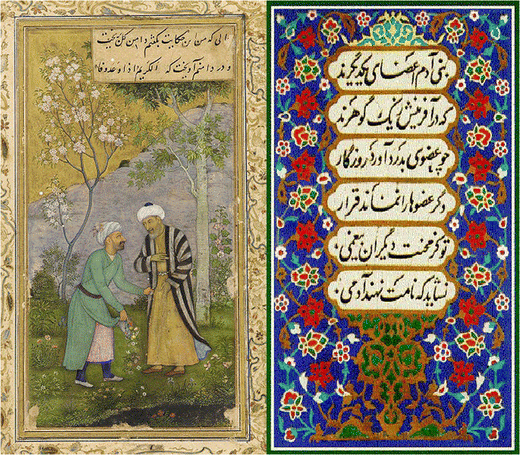 حالی که من این حکایت بگفتم دامن گل بریخت
و در دامنم آویخت که الکریم اذا وعد وفا
بنی آدم اعضای یکدیگرند
که در آفرینش ز یک گوهرند
چو عضوی بدرد آورد روزگار
دگر عضوها را نماند قرار
تو کز محنت دیگران بی غمی
نشاید که نامت نهند آدمی